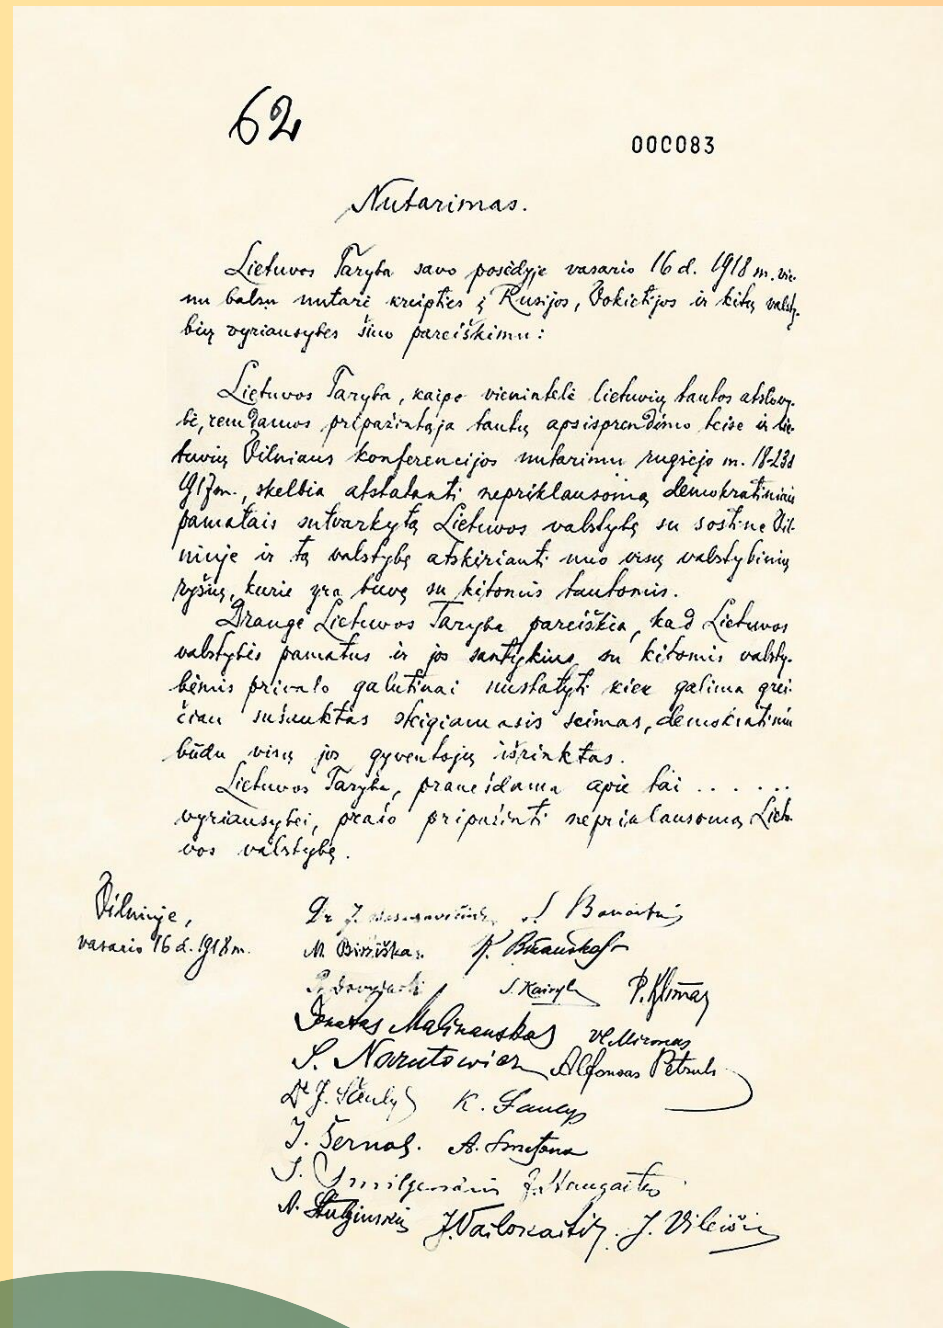 62
000083
Nutarimas.
Lietuvos Taryba savo posėdyje vasario 16 d. 1918 m. vie-
nu balsu nutarė kreipties į Rusijos, Vokietijos ir kitų valsty-
bių vyriausybes šiuo pareiškimu:
Lietuvos Taryba, kaipo vienintelė lietuvių tautos atstovy-
bė, remdamos pripažintąja tautų apsisprendimo teise ir lie-
tuvių Vilniaus konferencijos nutarimu rugsėjo m. 18-23 d
1917 m., skelbia atstatanti nepriklausomą demokratiniais
pamatais sutvarkytą Lietuvos valstybę su sostine Vil-
niuje ir tą valstybę atskirianti nuo visų valstybinių
ryšių, kurie yra buvę su kitomis tautomis.
Drauge Lietuvos Taryba pareiškia, kad Lietuvos
valstybės pamatus ir jos santykius su kitomis valsty-
bėmis privalo galutinai nustatyti kiek galima grei-
čiau sušauktas steigiamasis seimas, demokratiniu
būdu visų jos gyventojų išrinktas.
Lietuvos Taryba, pranešdama apie tai . . . . . .
vyriausybei, prašo pripažinti nepriklausomą Lietu-
vos valstybę.
Vilniuje,
vasario 16 d. 1918 m.
Dr J. Basanavičius S. Banaitis
M. Biržiška K. Bizauskas
S. Kairys P. Klimas
Donatas Malinauskas Vl. Mironas
S. Narutowicz Alfonsas Petrulis
Dr J. Šaulys K. Šaulys
J. Šernas A. Smetona
J. Smilgevičius J. Staugaitis
A. Stulginskis J. Vailokaitis J. Vileišis